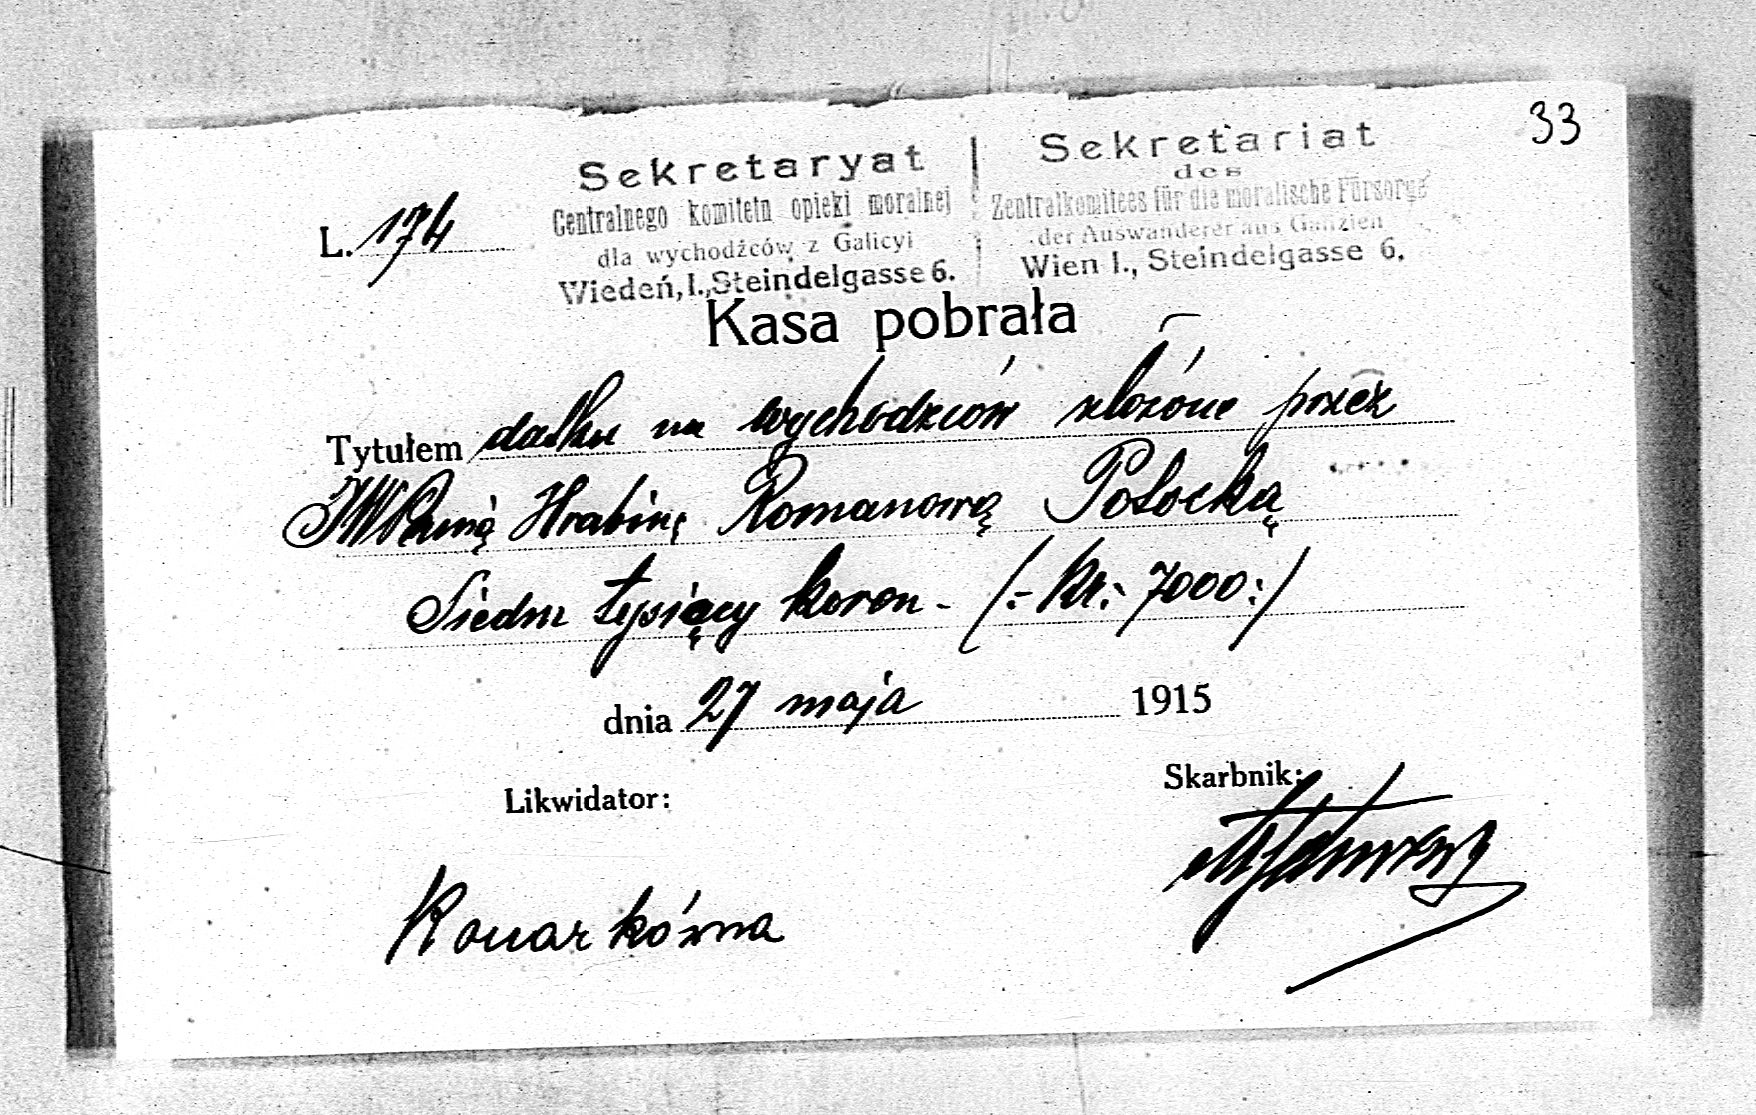 33
Sekretaryat
Centralnego komitetu opieki moralnej
dla wychodźców z Galicyi
Wiedeń, I., Steindelgasse 6.
Sekretariat
des
Zentralkomitees für die moralische Fürsorge
der Auswanderer aus Galizien
Wien I., Steindelgasse 6.
L. 174
Kasa pobrała
Tytułem datku na wychodźców złożone przez
JWPanią Hrabinę Romanową Potocką
Siedm tysięcy koron - (:- Kr:- 7000:)
dnia 27 maja 1915
Likwidator:
Skarbnik:
Konarkówna